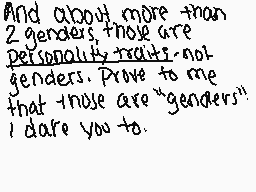 And about more than
2 genders, those are
personality traits-not
genders. Prove to me
that those are "genders".
I dare you to.